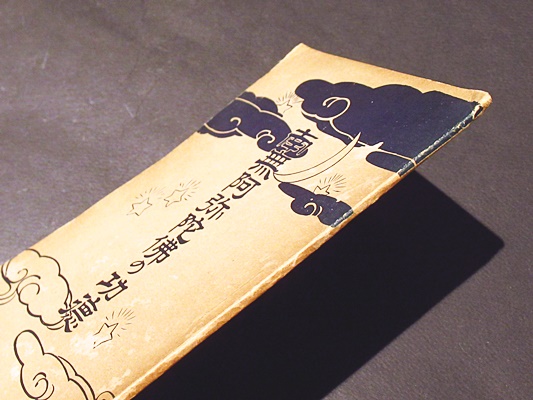 南無阿弥陀佛の功徳